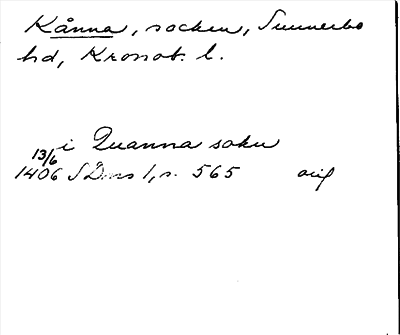 Kånna, socken, Sunnerbo
hd, Kronob. l.
i Quanna sokn
13/6
1406 SDns 1, s. 565 orig